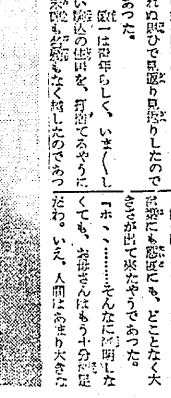 れぬ思ひで見返り見返りしたので
あつた。
一は青年らしく、いま〳〵し
い込の住居を、打捨てるやうに
も名もなく越したのであつ
にも態度にも、どことなく大
きさが出て來たやうであつた。
『ホヽヽ………そんなに明しな
くても、お母さんはもう十分足
だわ。いえ、人間はあまり大きな